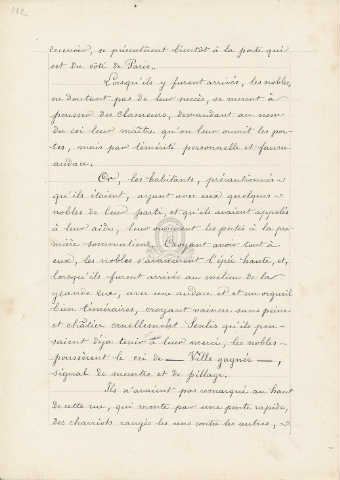 112
recevoir, se présentèrent bientôt à la porte qui
est du côté de Paris.
Lorsqu'ils y furent arrivés, les nobles,
ne doutant pas de leur succès, se mirent à
pousser des clameurs, demandant au nom
du roi leur maître qu'on leur ouvrit les por-
tes, mais par témérité personnelle et fausse
audace.
Or, les habitants, précautionnés
qu'ils étaient, ayant avec eux quelques
nobles de leur parti, et qu'ils avaient appelés
à leur aide, leur ouvrirent les portes à la pre-
mière sommation. Croyant avoir tout à
eux, les nobles s'avancèrent l'épée haute, et,
lorsqu'ils furent arrivés au milieu de la
grande rue, avec une audace et un orgueil
bien téméraires, croyant vaincre sans peine
et châtier cruellement ceux qu'ils pen-
saient déjà tenir à leur merci, les nobles
poussèrent le cri de — Ville gagnée —,
signal de meurtre et de pillage.
Ils n'avaient pas remarqué au haut
de cette rue, qui monte par une pente rapide,
des charriots rangés les uns contre les autres,